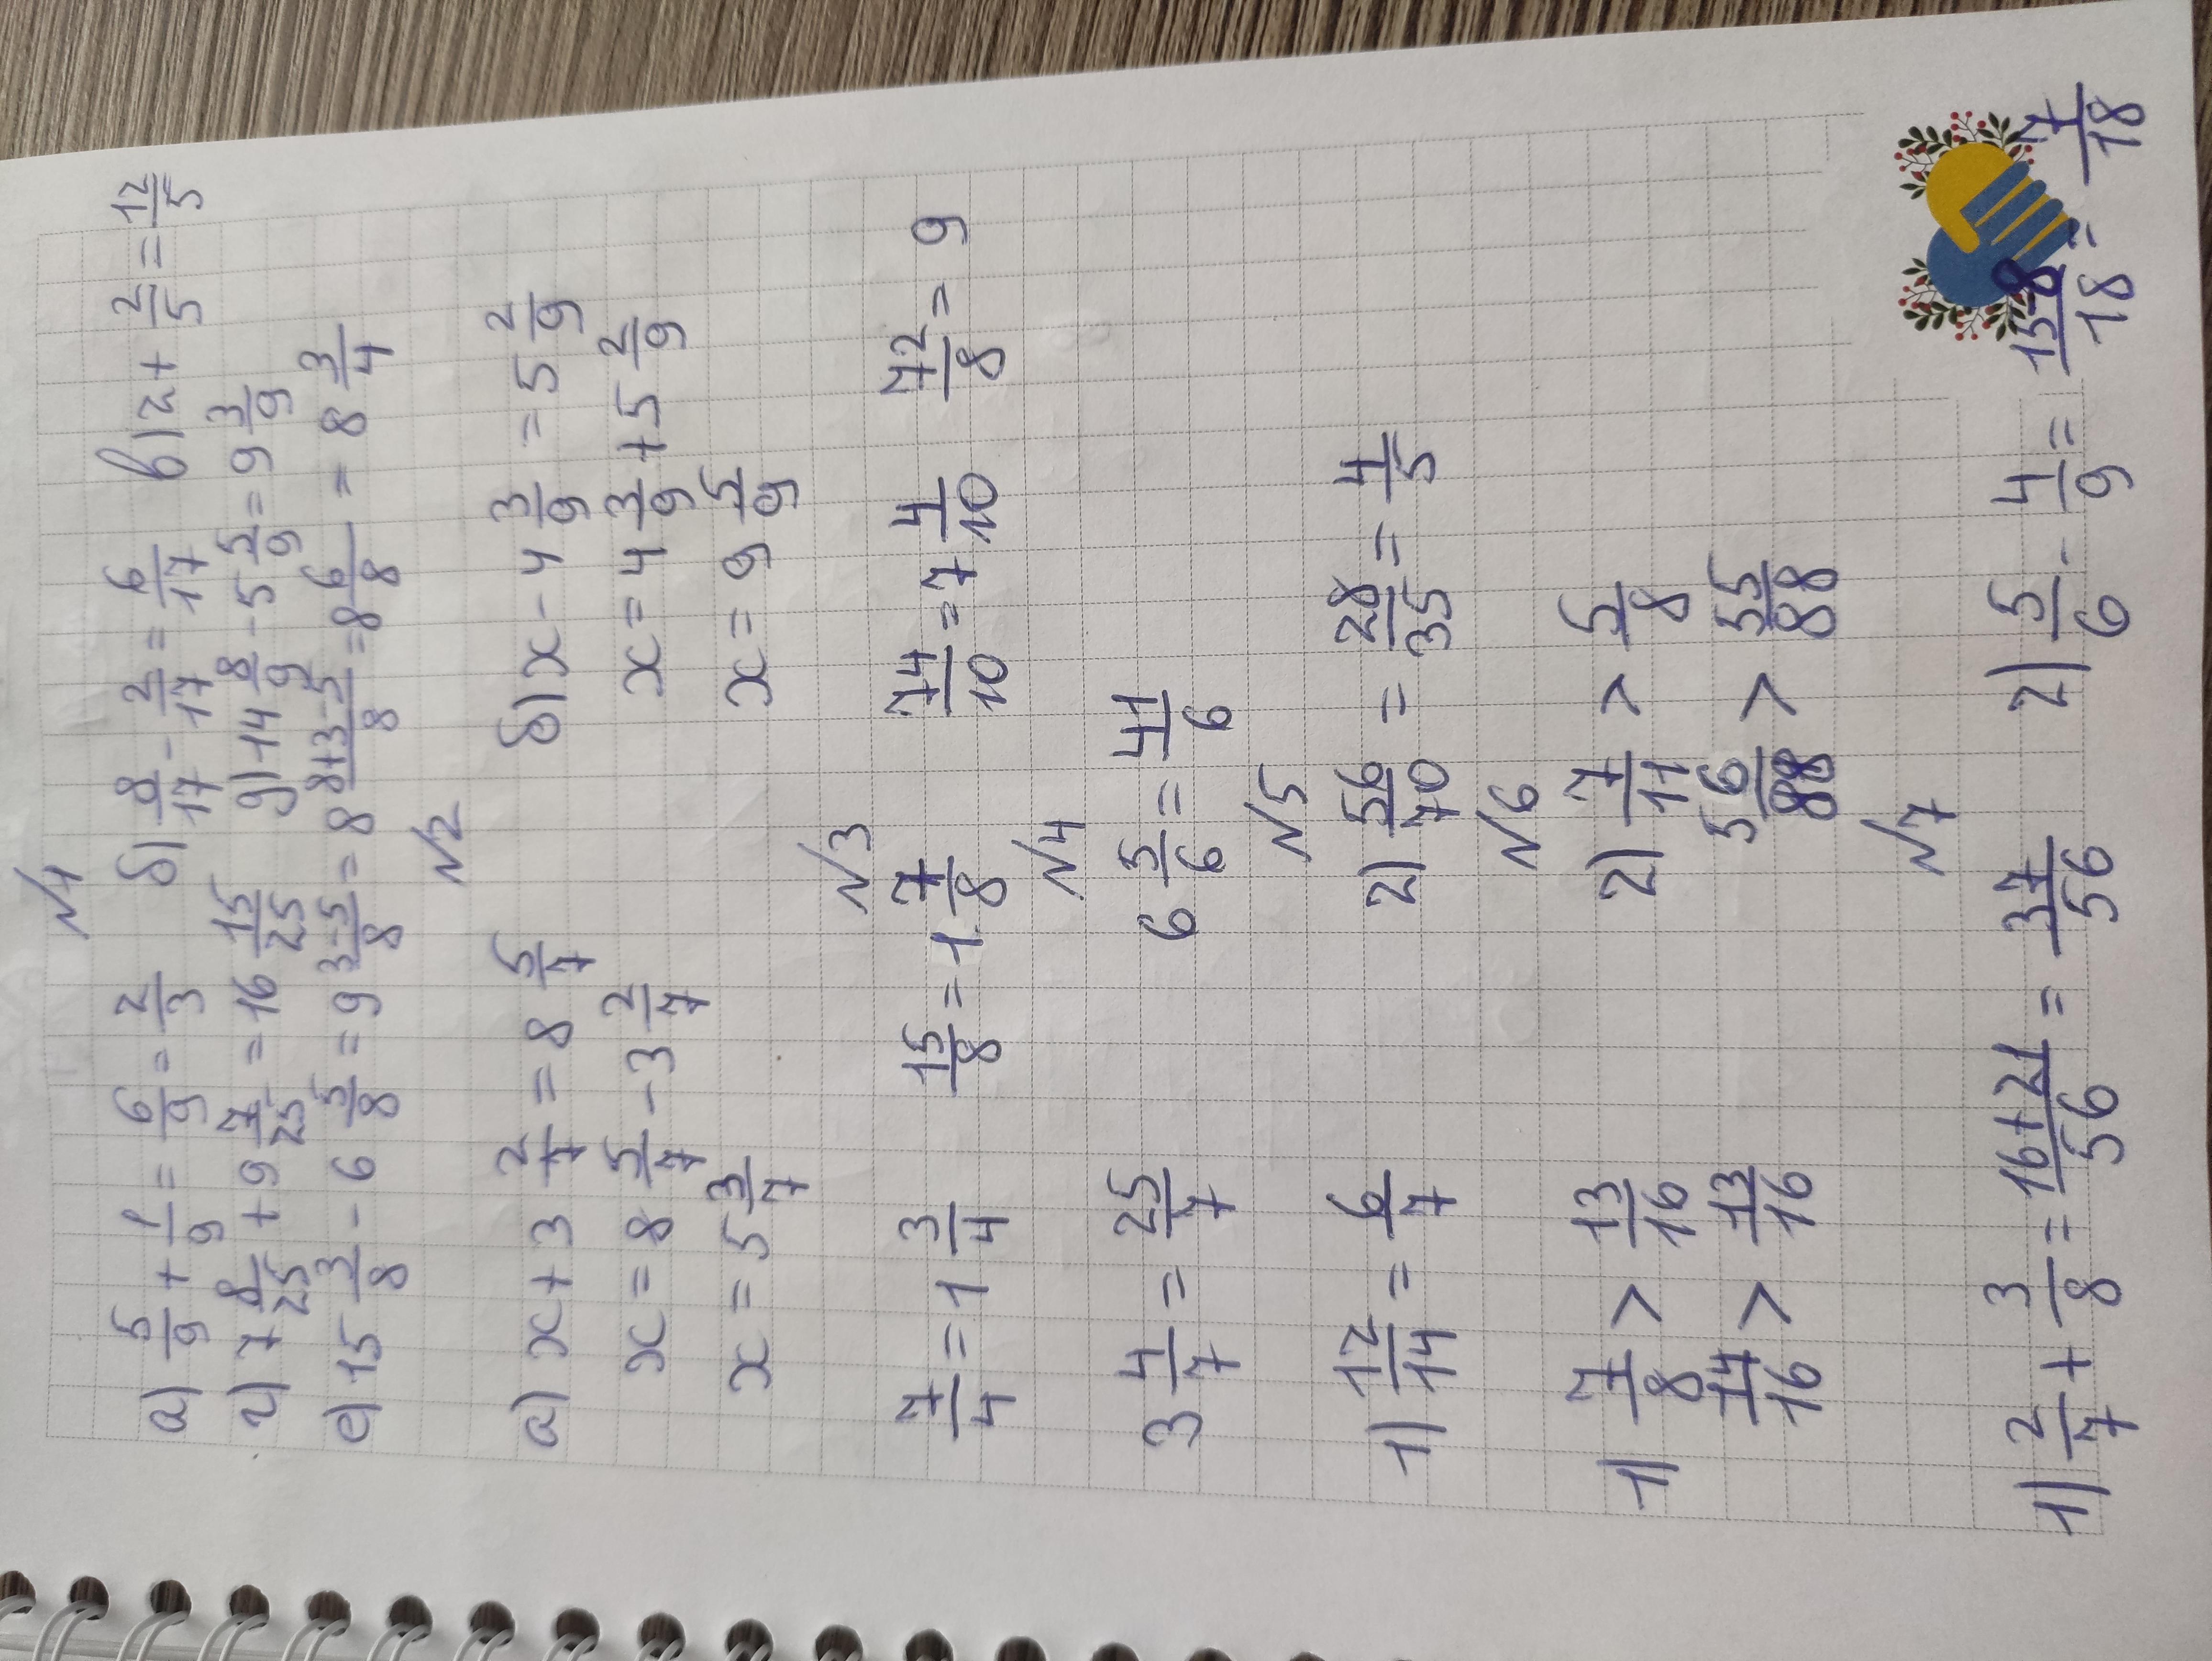 №1
а) 5/9 + 1/9 = 6/9 = 2/3 б) 8/17 - 2/17 = 6/17 в) 2 + 2/5 = 12/5
г) 7 8/25 + 9 7/25 = 16 15/25 д) 14 8/9 - 5 5/9 = 9 3/9
е) 15 3/8 - 6 5/8 = 9 3-5/8 = 8 8+3-5/8 = 8 6/8 = 8 3/4
№2
а) x + 3 2/7 = 8 5/7 б) x - 4 3/9 = 5 2/9
x = 8 5/7 - 3 2/7 x = 4 3/9 + 5 2/9
x = 5 3/7 x = 9 5/9
№3
7/4 = 1 3/4 15/8 = 1 7/8 74/10 = 7 4/10 72/8 = 9
№4
3 4/7 = 25/7 6 5/6 = 41/6
№5
1) 12/14 = 6/7 2) 56/70 = 28/35 = 4/5
№6
1) 7/8 > 13/16 2) 7/11 > 5/8
14/16 > 13/16 56/88 > 55/88
№7
1) 2/7 + 3/8 = 16+21/56 = 37/56 2) 5/6 - 4/9 = 15-8/18 = 7/18